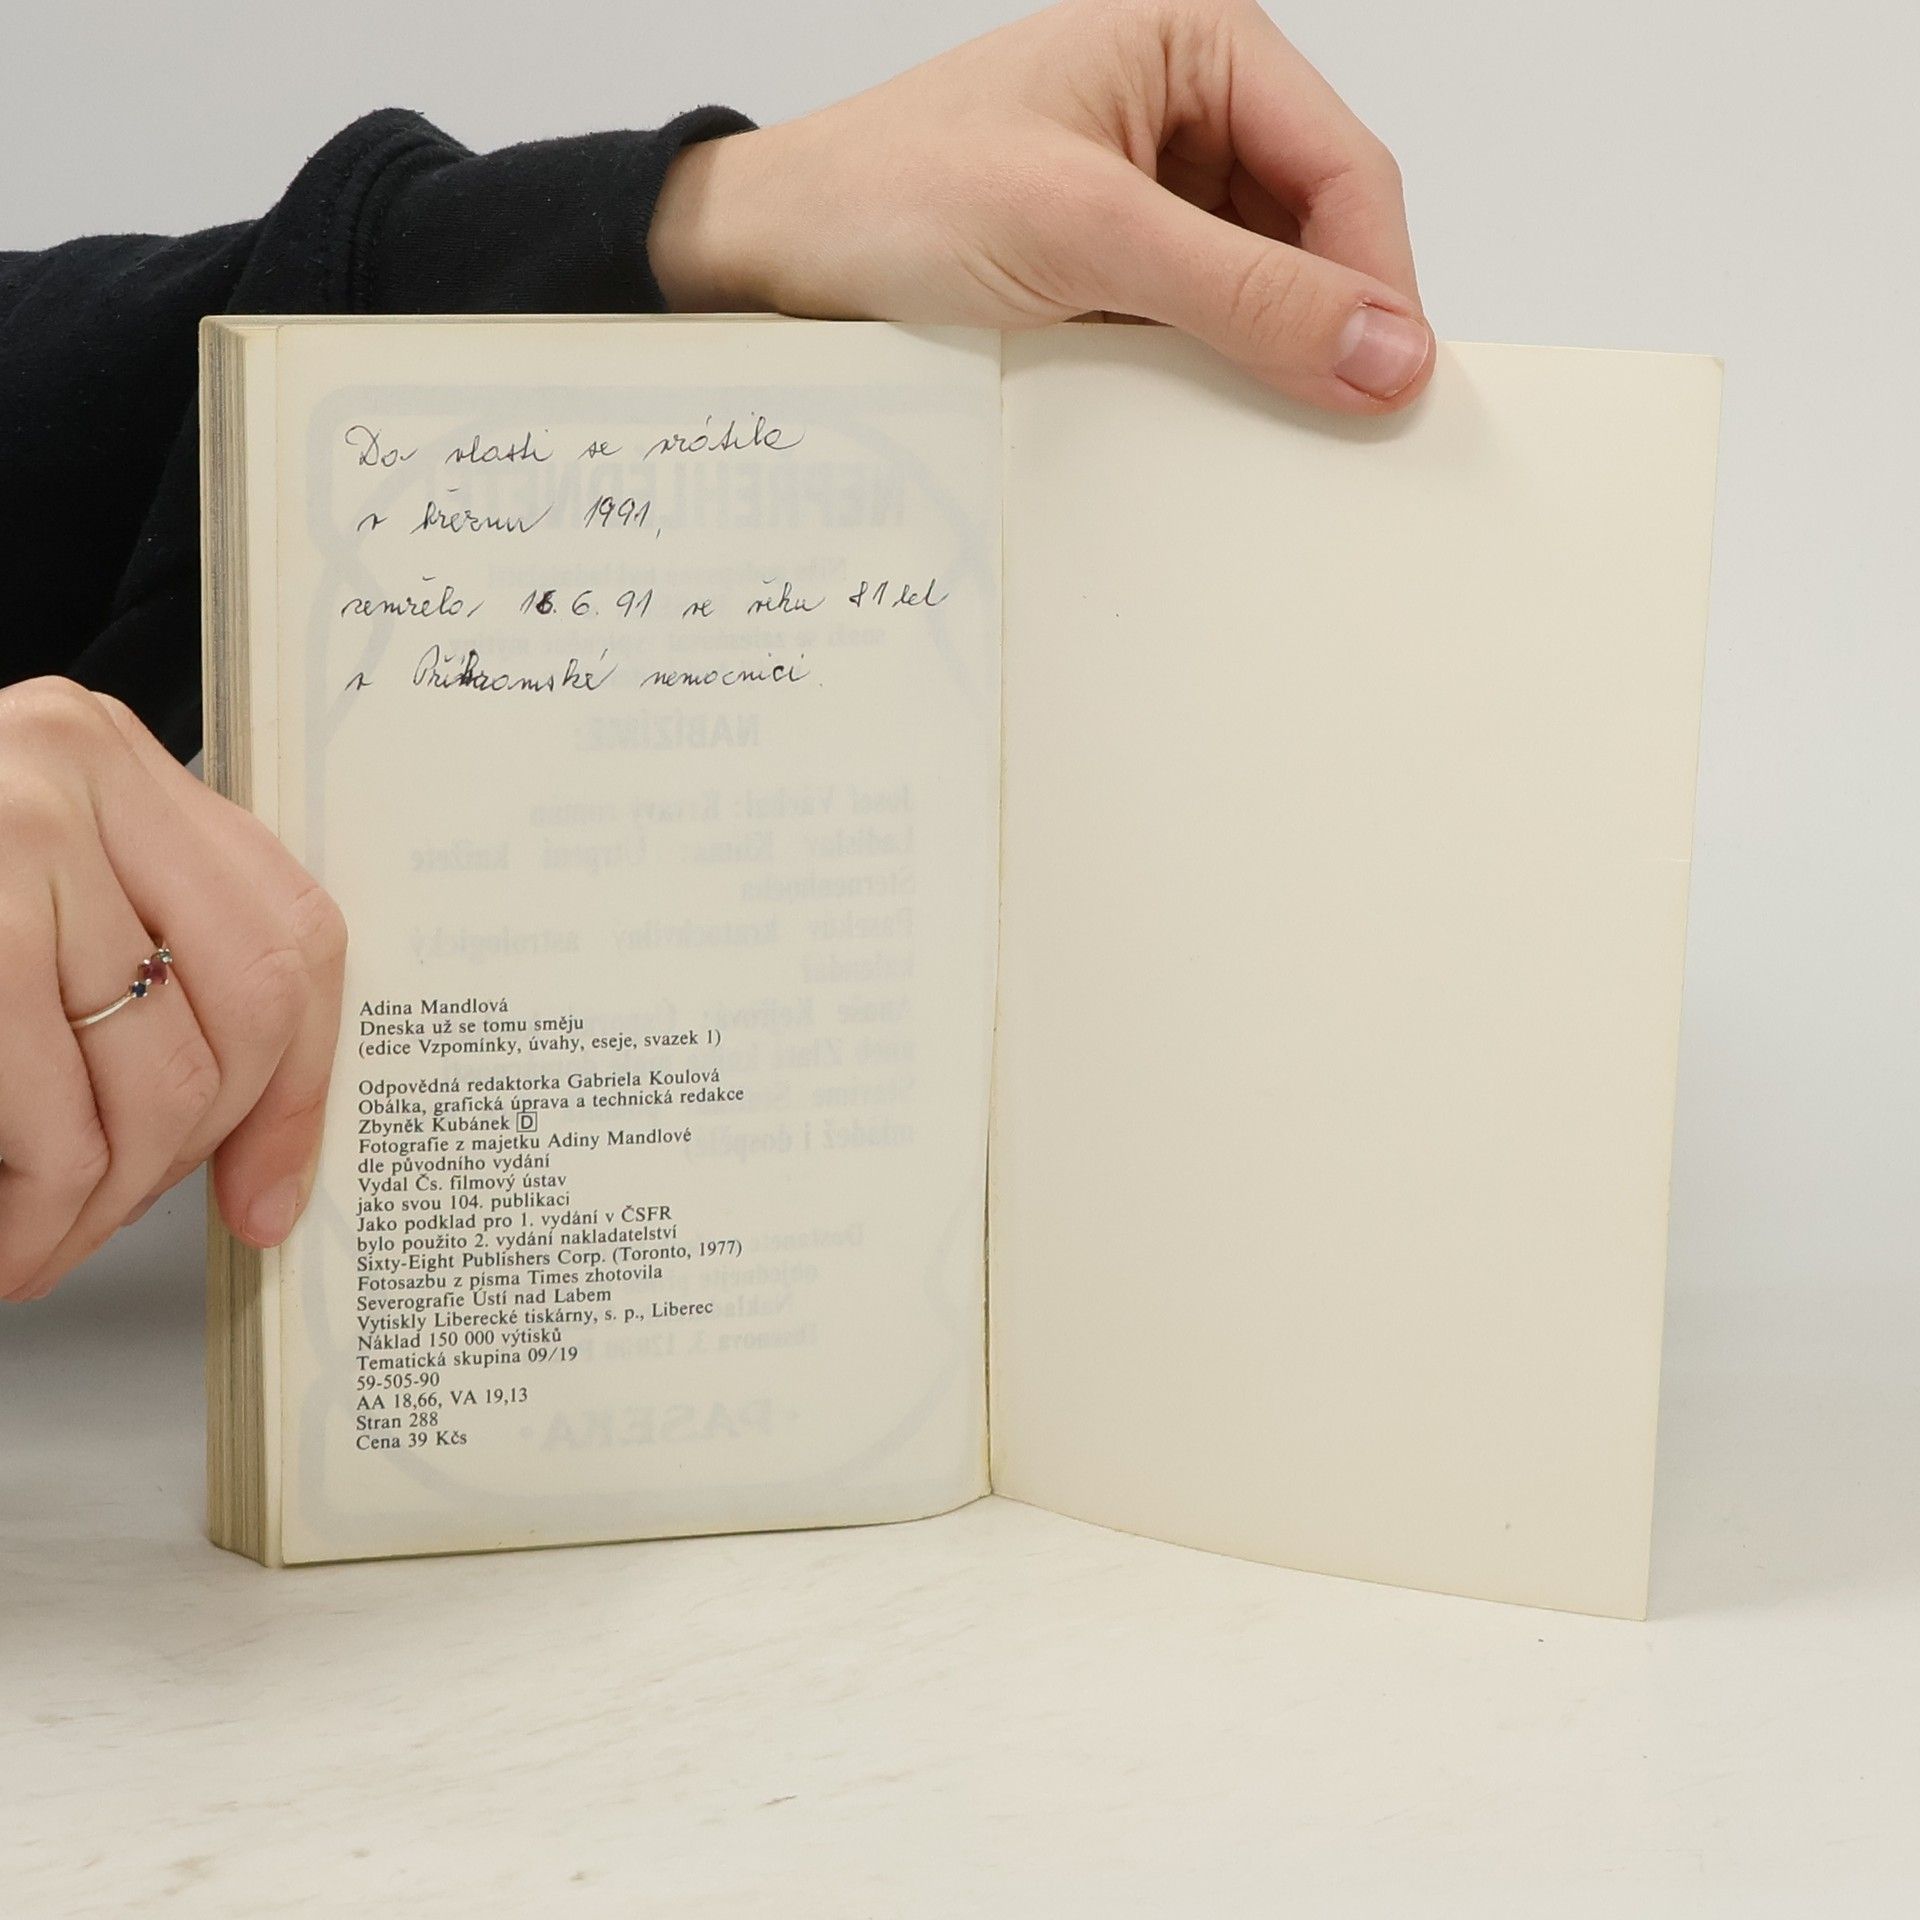 Do vlasti se vrátila
v březnu 1991,
zemřela 16. 6. 91 ve věku 81 let
v Příbramské nemocnici.
Adina Mandlová
Dneska už se tomu směju
(edice Vzpomínky, úvahy, eseje, svazek 1)
Odpovědná redaktorka Gabriela Koulová
Obálka, grafická úprava a technická redakce
Zbyněk Kubánek D
Fotografie z majetku Adiny Mandlové
dle původního vydání
Vydal Čs. filmový ústav
jako svou 104. publikaci
Jako podklad pro 1. vydání v ČSFR
bylo použito 2. vydání nakladatelství
Sixty-Eight Publishers Corp. (Toronto, 1977)
Fotosazbu z písma Times zhotovila
Severografie Ústí nad Labem
Vytiskly Liberecké tiskárny, s. p., Liberec
Náklad 150 000 výtisků
Tematická skupina 09/19
59-505-90
AA 18,66, VA 19,13
Stran 288
Cena 39 Kčs